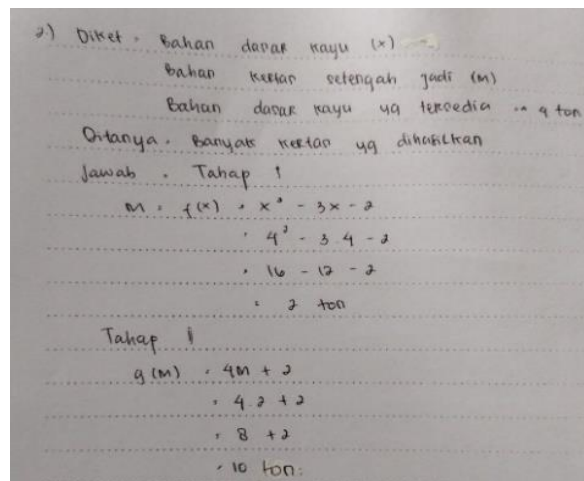 2.) Diket = Bahan dasar kayu (x)
Bahan kertas setengah jadi (m)
Bahan dasar kayu yg tersedia = 4 ton
Ditanya = Banyak kertas yg dihasilkan
Jawab = Tahap 1
m = f(x) = x² - 3x - 2
= 4² - 3.4 - 2
= 16 - 12 - 2
= 2 ton
Tahap
g(m) = 4m + 2
= 4.2 + 2
= 8 + 2
= 10 ton.